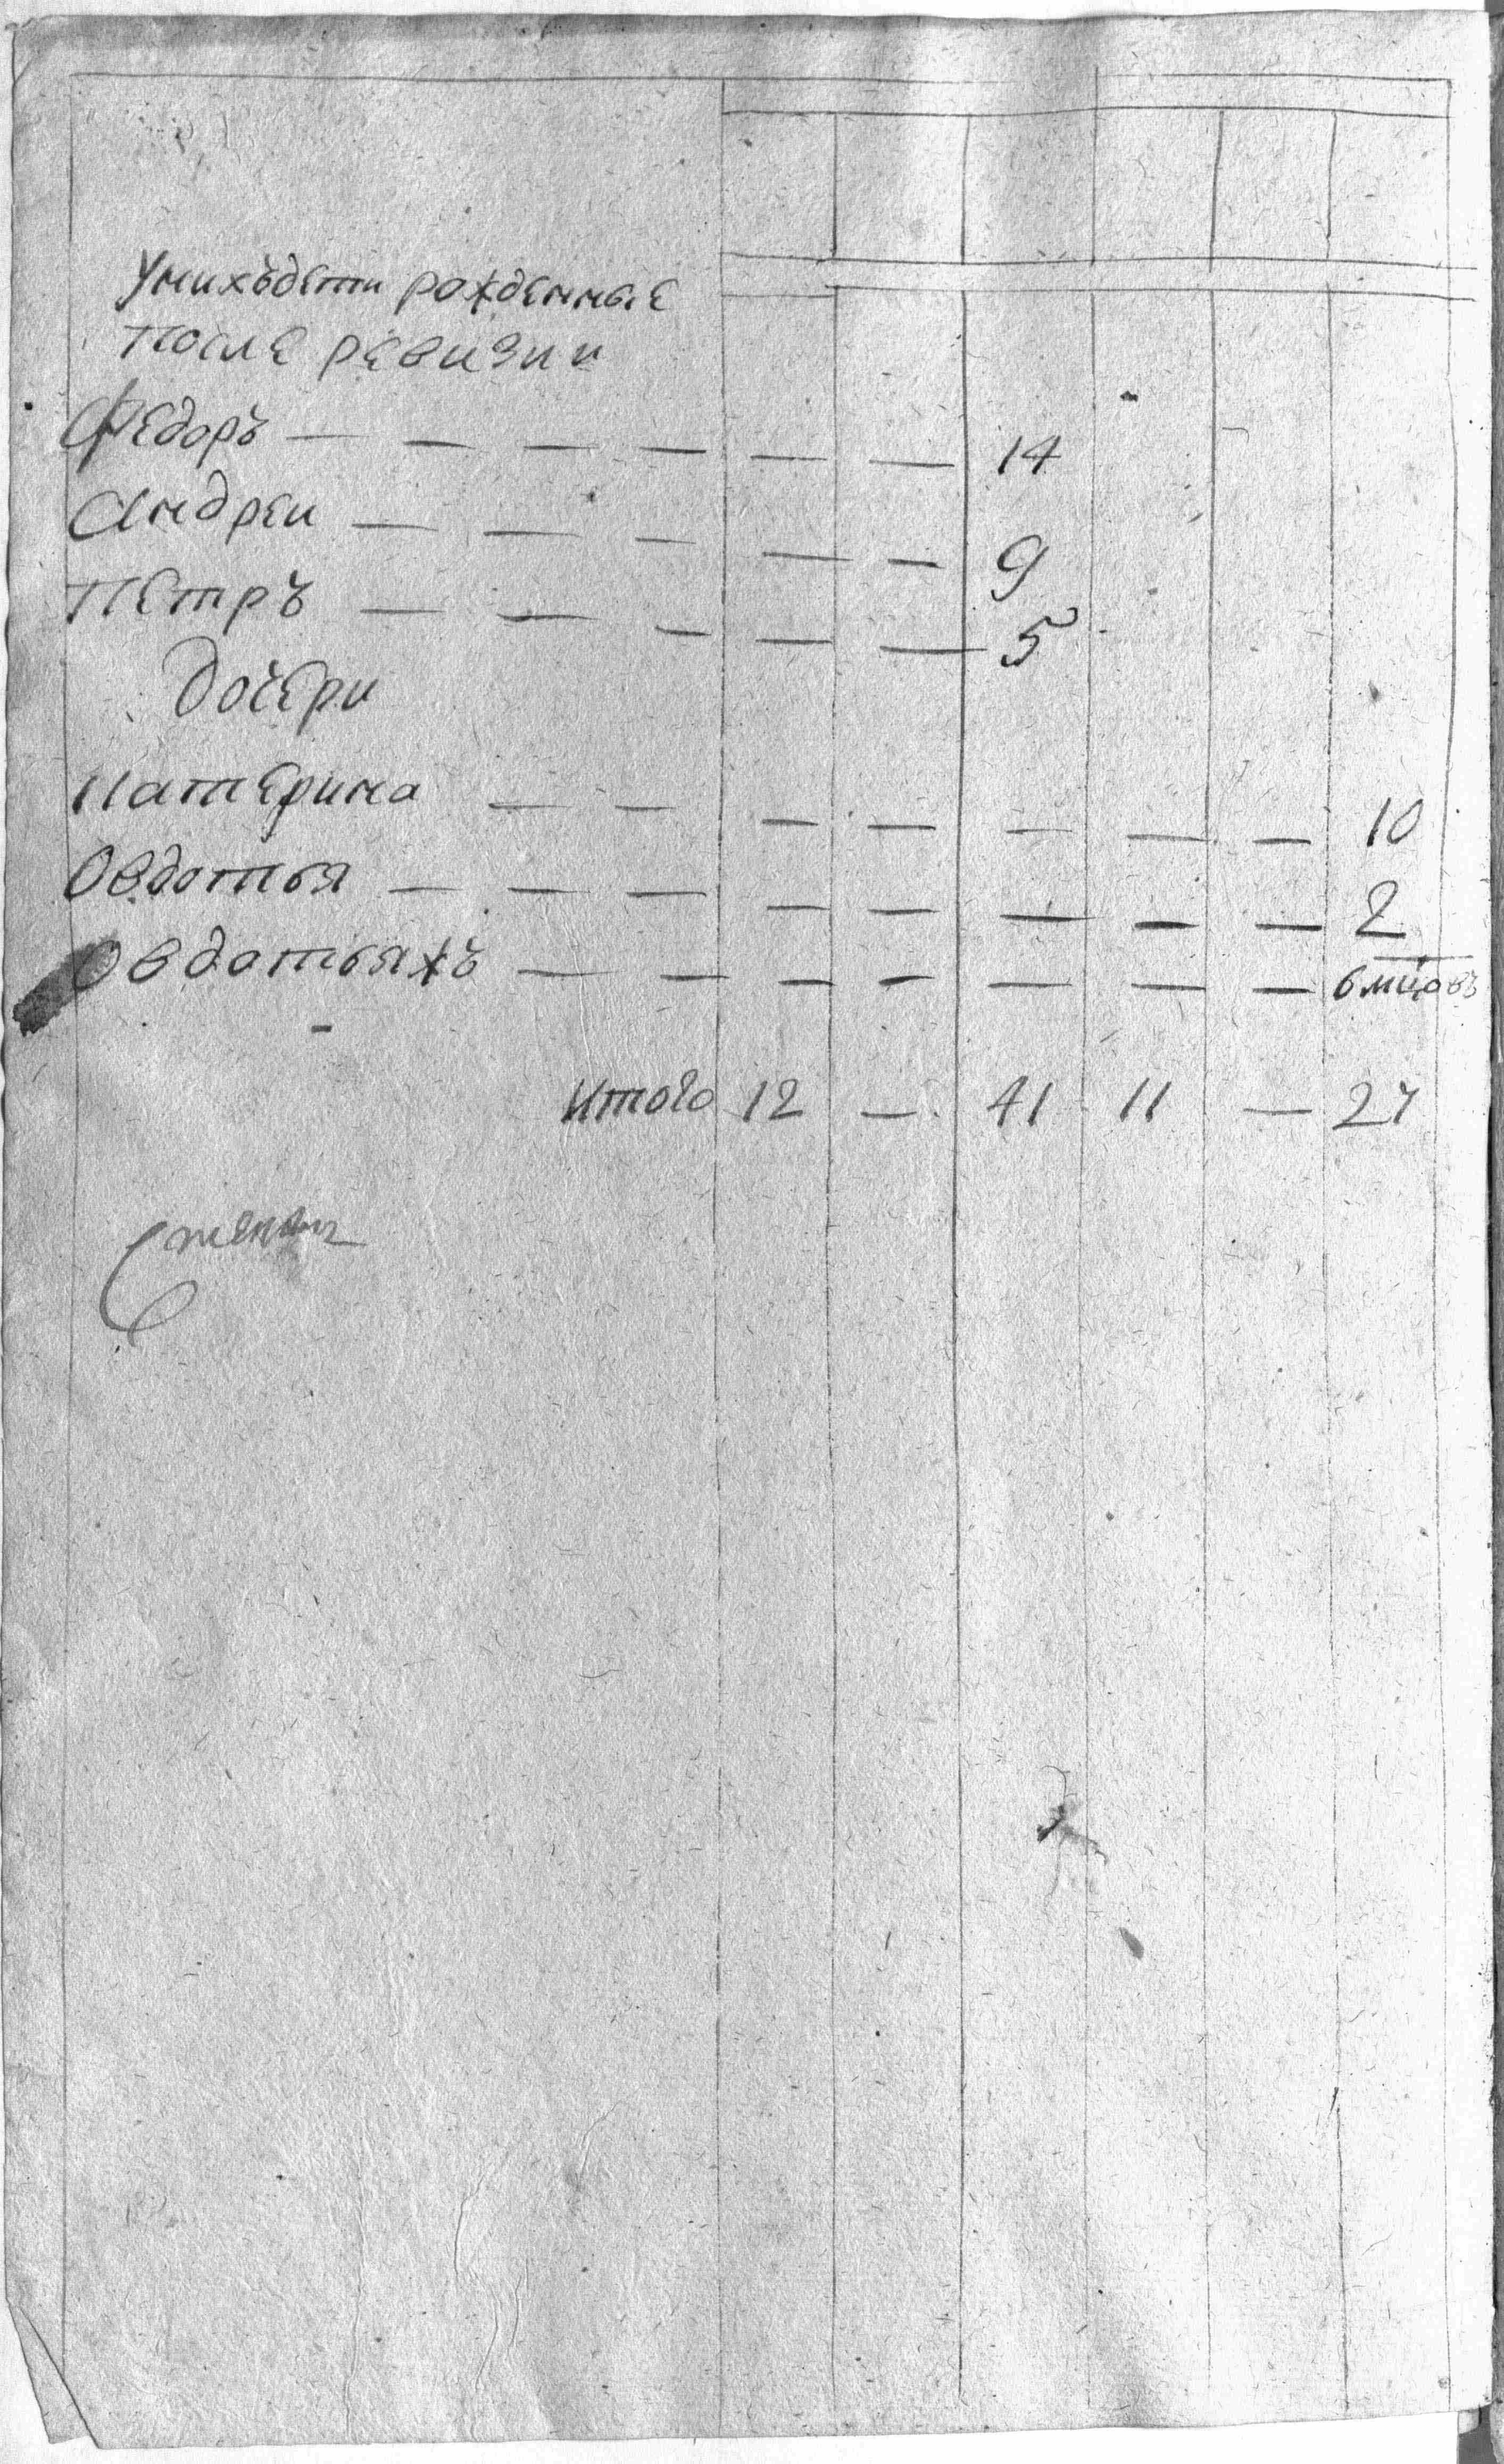 У нихъ дети рожденные
после ревизии
Федоръ — — — — — — 14
Андреи — — — — — 9
Петръ — — — — — 5
дочери
Катерина — — — — — — — 10
Овдотья — — — — — — — — 2
Овдотьяжъ — — — — — — — 6 мцовъ
Итого 12 — 41 11 — 27